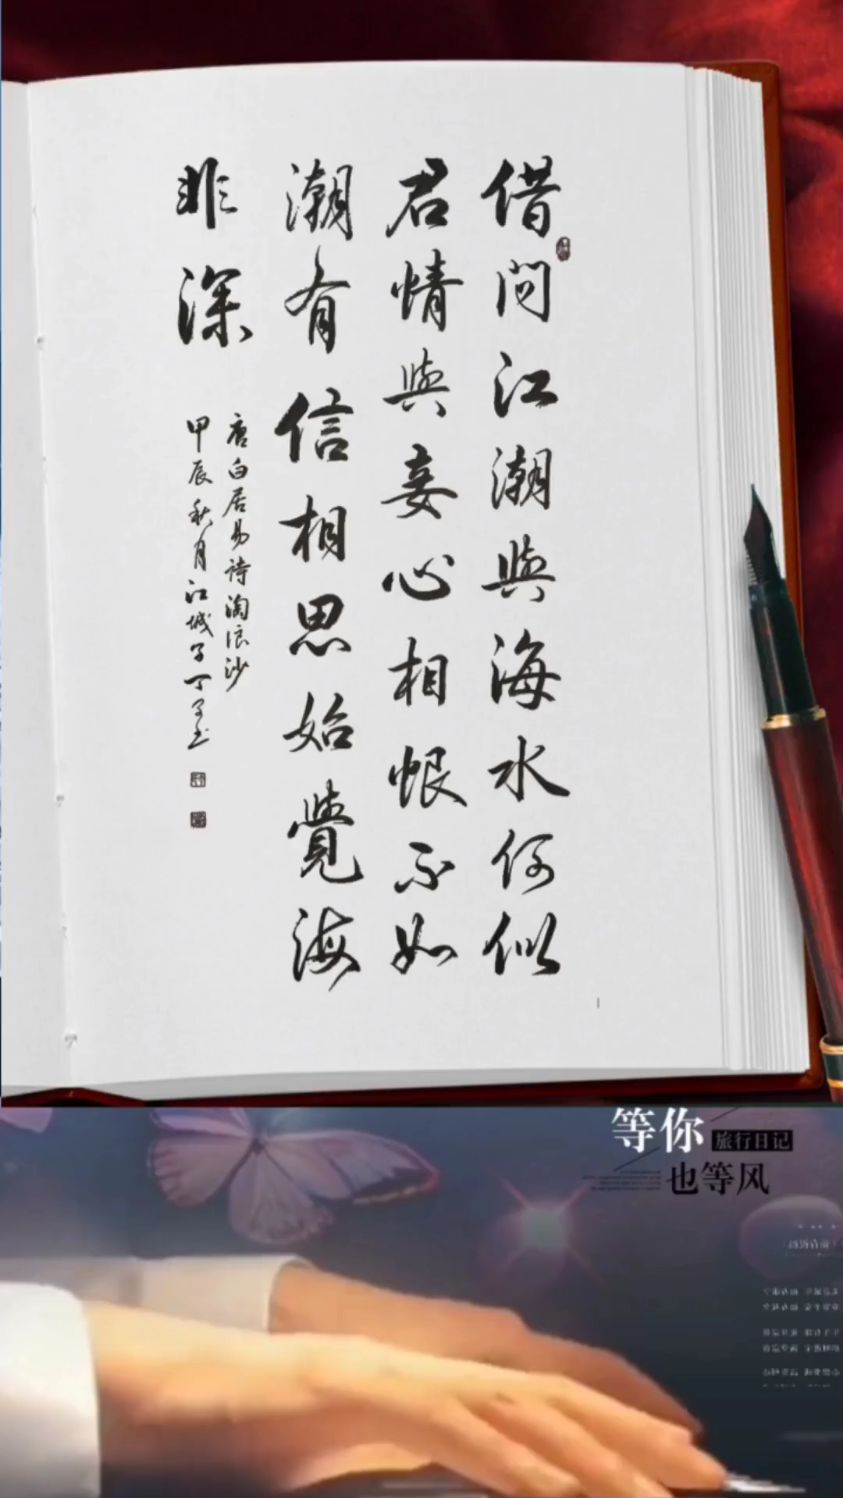 借问江潮與海水何似
君情與妾心相恨不如
潮有信相思始覺海
非深
唐白居易诗淘浪沙
甲辰秋月江城子丁
等你
旅行日记
也等风